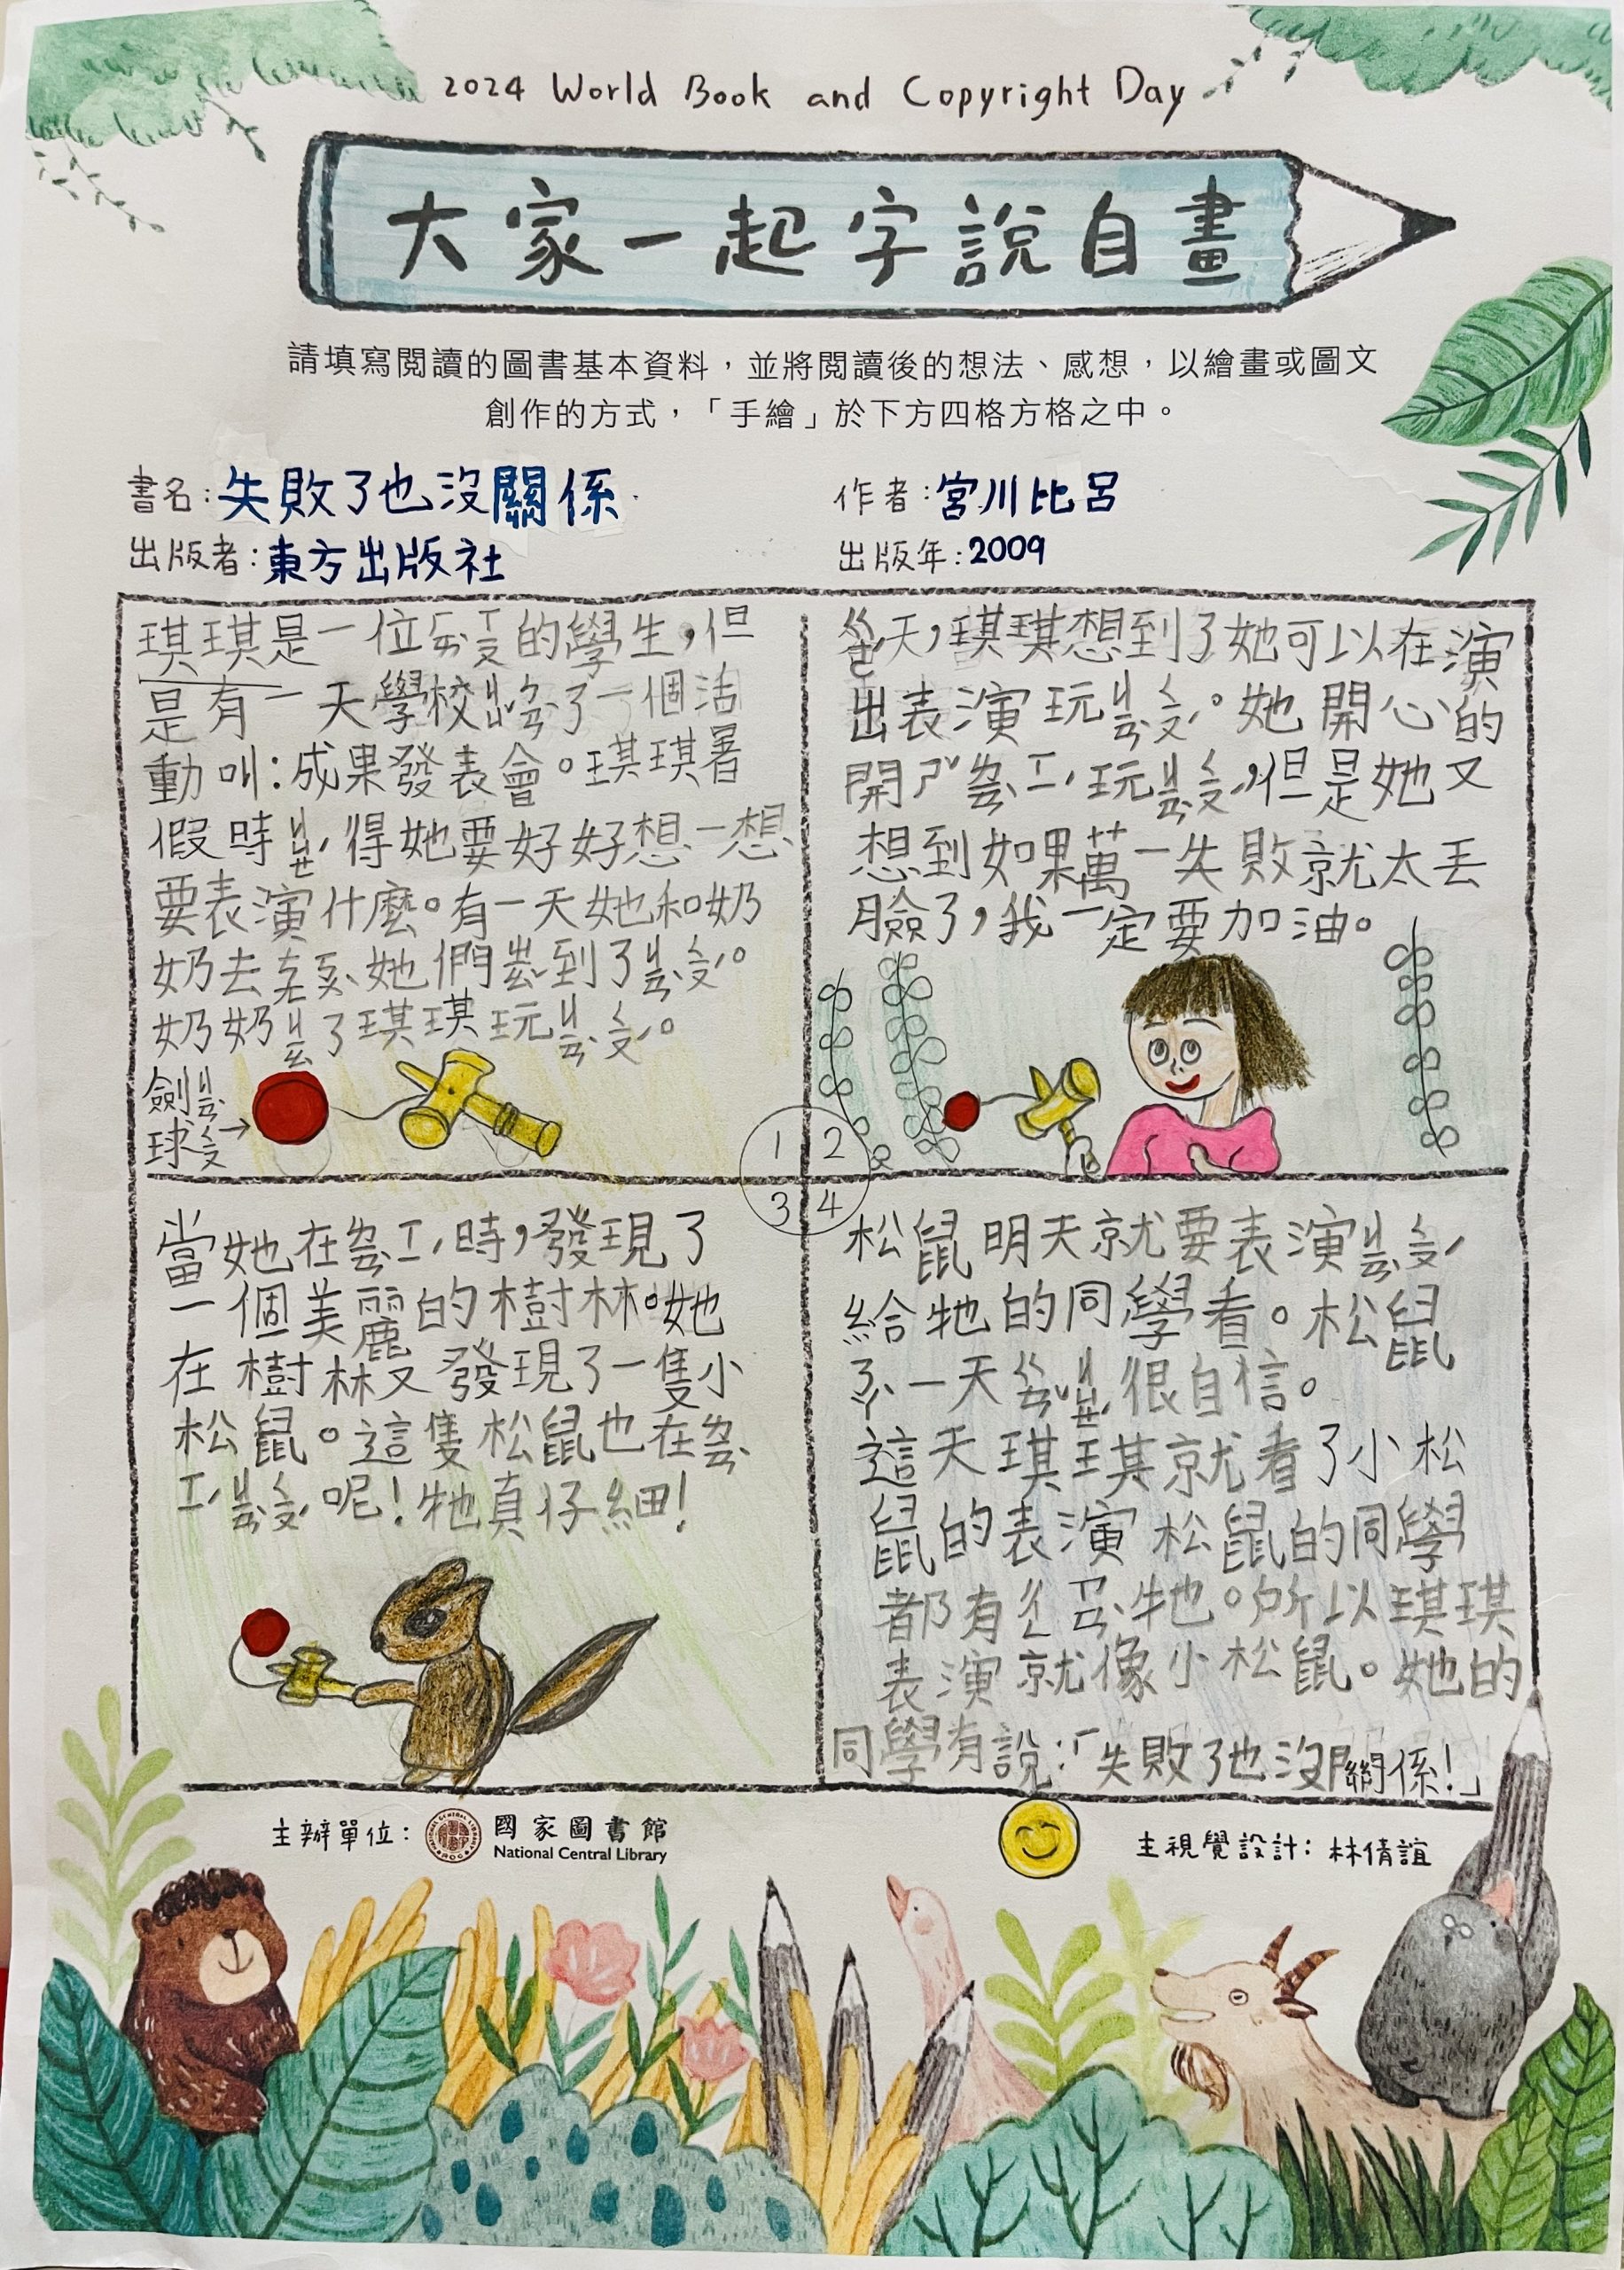 2024 World Book and Copyright Day
大家一起字說自畫
請填寫閱讀的圖書基本資料，並將閱讀後的想法、感想，以繪畫或圖文
創作的方式，「手繪」於下方四格方格之中。
書名：失敗了也沒關係
作者：宮川比呂
出版者：東方出版社
出版年：2009
琪琪是一位的學生，但
是有一天學校了一個活
動叫：成果發表會。琪琪暑
假時ㄐㄩㄝˊ得她要好好想一想
要表演什麼。有一天她和奶
奶去她們到了ㄐㄧㄢˋㄑㄧㄡˊ。
奶奶ㄐㄧㄠ了琪琪玩ㄐㄧㄢˋㄑㄧㄡˊ。
劍ㄐㄧㄢˋ
球ㄑㄧㄡˊ→
1
2
3
4
天，琪琪想到了她可以在演
出表演玩ㄐㄧㄢˋㄑㄧㄡˊ。她開心的
開ㄕˇㄌㄧㄢˋㄒㄧˊ玩ㄐㄧㄢˋㄑㄧㄡˊ，但是她又
想到如果萬一失敗就太丟
臉了，我一定要加油。
當她在ㄌㄧㄢˋㄒㄧˊ時，發現了
一個美麗的樹林。她
在樹林又發現了一隻小
松鼠。這隻松鼠也在ㄌㄧㄢˋ
ㄒㄧˊㄐㄧㄢˋㄑㄧㄡˊ呢！牠真仔細！
松鼠明天就要表演ㄐㄧㄢˋㄑㄧㄡˊ
給牠的同學看。松鼠
一天很自信。
這天琪琪就看了小松
鼠的表演松鼠的同學
都有ㄔㄥㄗㄢˋ牠。所以琪琪
表演就像小松鼠。她的
同學有說：「失敗了也沒關係！」
主辦單位：
國家圖書館
National Central Library
主視覺設計：林倩誼